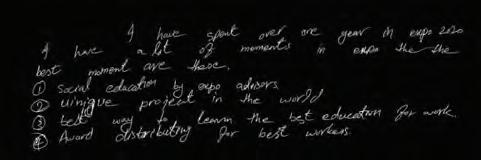 I have spent over one year in expo 2020
I have a lot of moments in expo the the
best moment are these.
① Social education by expo advisors
② uinique project in the world
③ best way to learn the best education for work.
④ Award distributing for best workers.